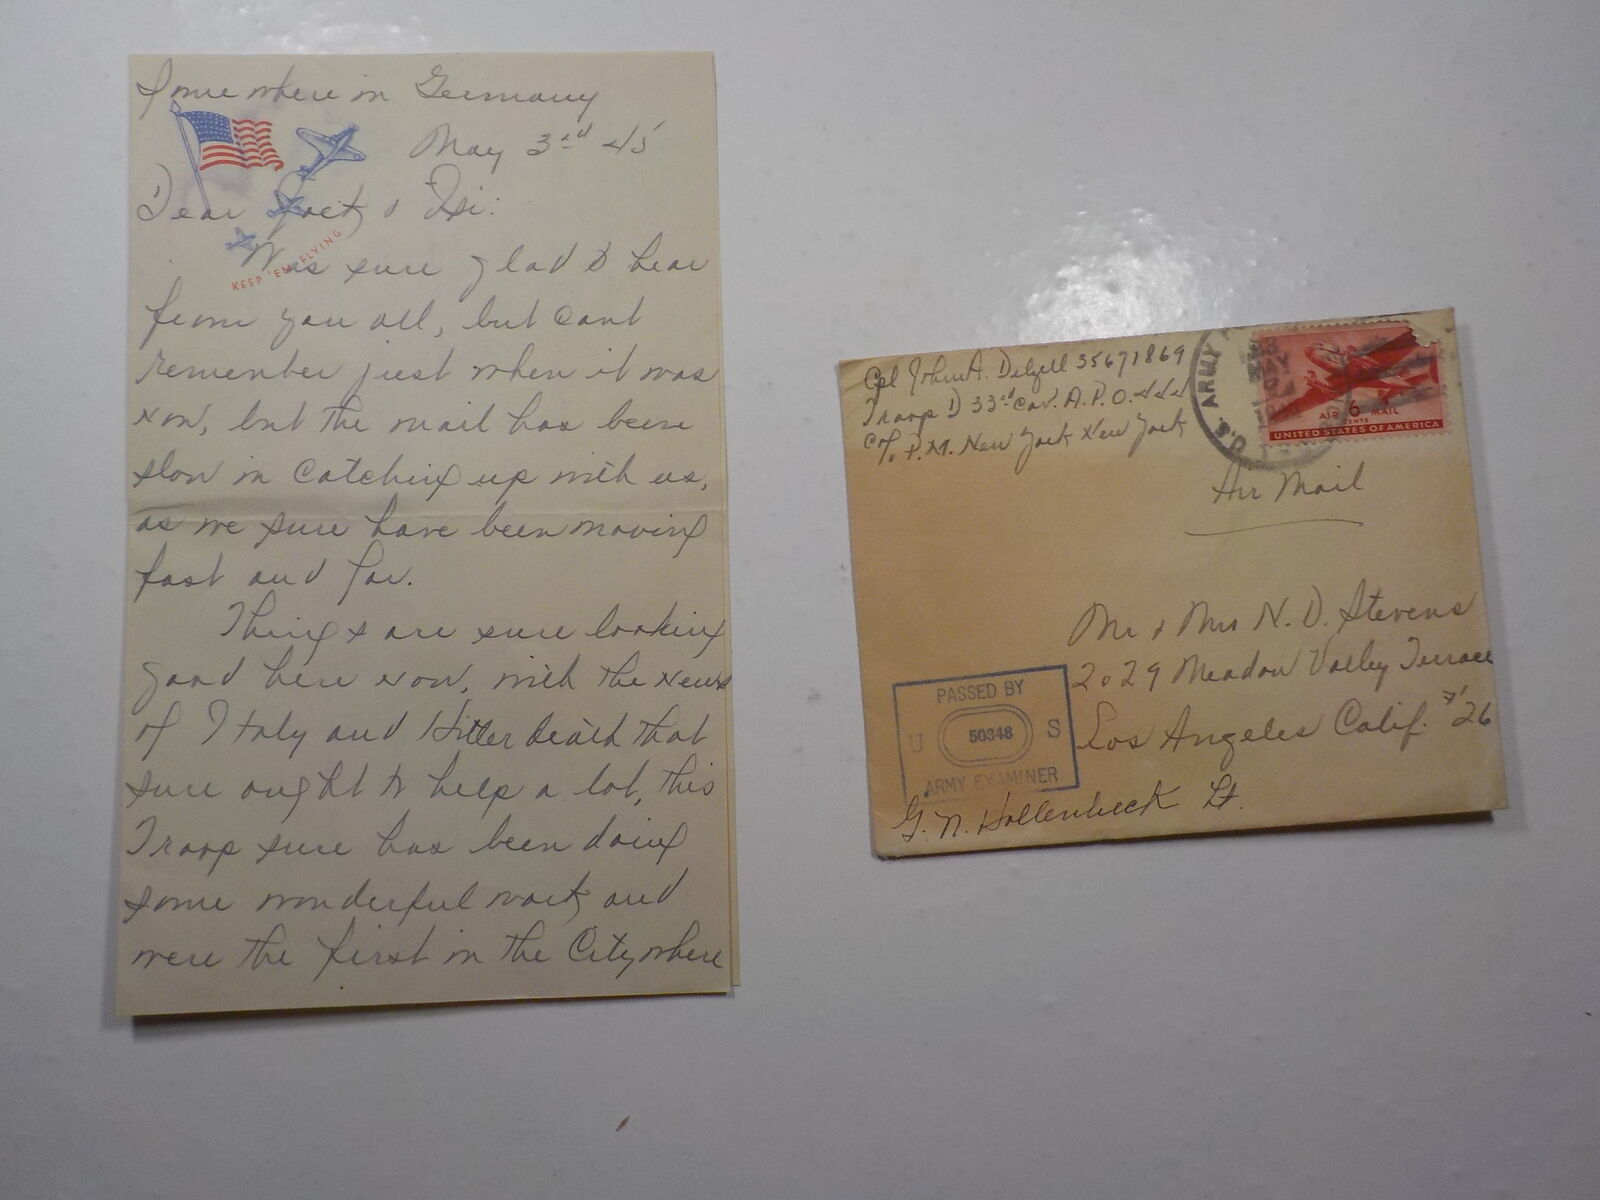 Somewhere in Germany
May 3rd 45
Dear Jack &
KEEP 'EM FLYING
Was sure glad to hear
from you all, but cant
remember just when it was
now, but the mail has been
slow in catching up with us,
as we sure have been moving
fast and far.
Things are sure looking
good here now, with the news
of Italy and Hitler death that
sure ought to help a lot, this
Troop sure has been doing
some wonderful work and
were the first in the City where
Cpl John A. Delzell 35671869
Troop D 33rd Cav. A.P.O. 444
c/o P.M. New York New York
U.S. ARMY
AIR 6 MAIL
CENTS
UNITED STATES OF AMERICA
Air Mail
Mr & Mrs N. D. Stevens
2029 Meadow Valley Terrace
Los Angeles Calif. #26
PASSED BY
U 50348 S
ARMY EXAMINER
G. N. Hollenbeck Lt.